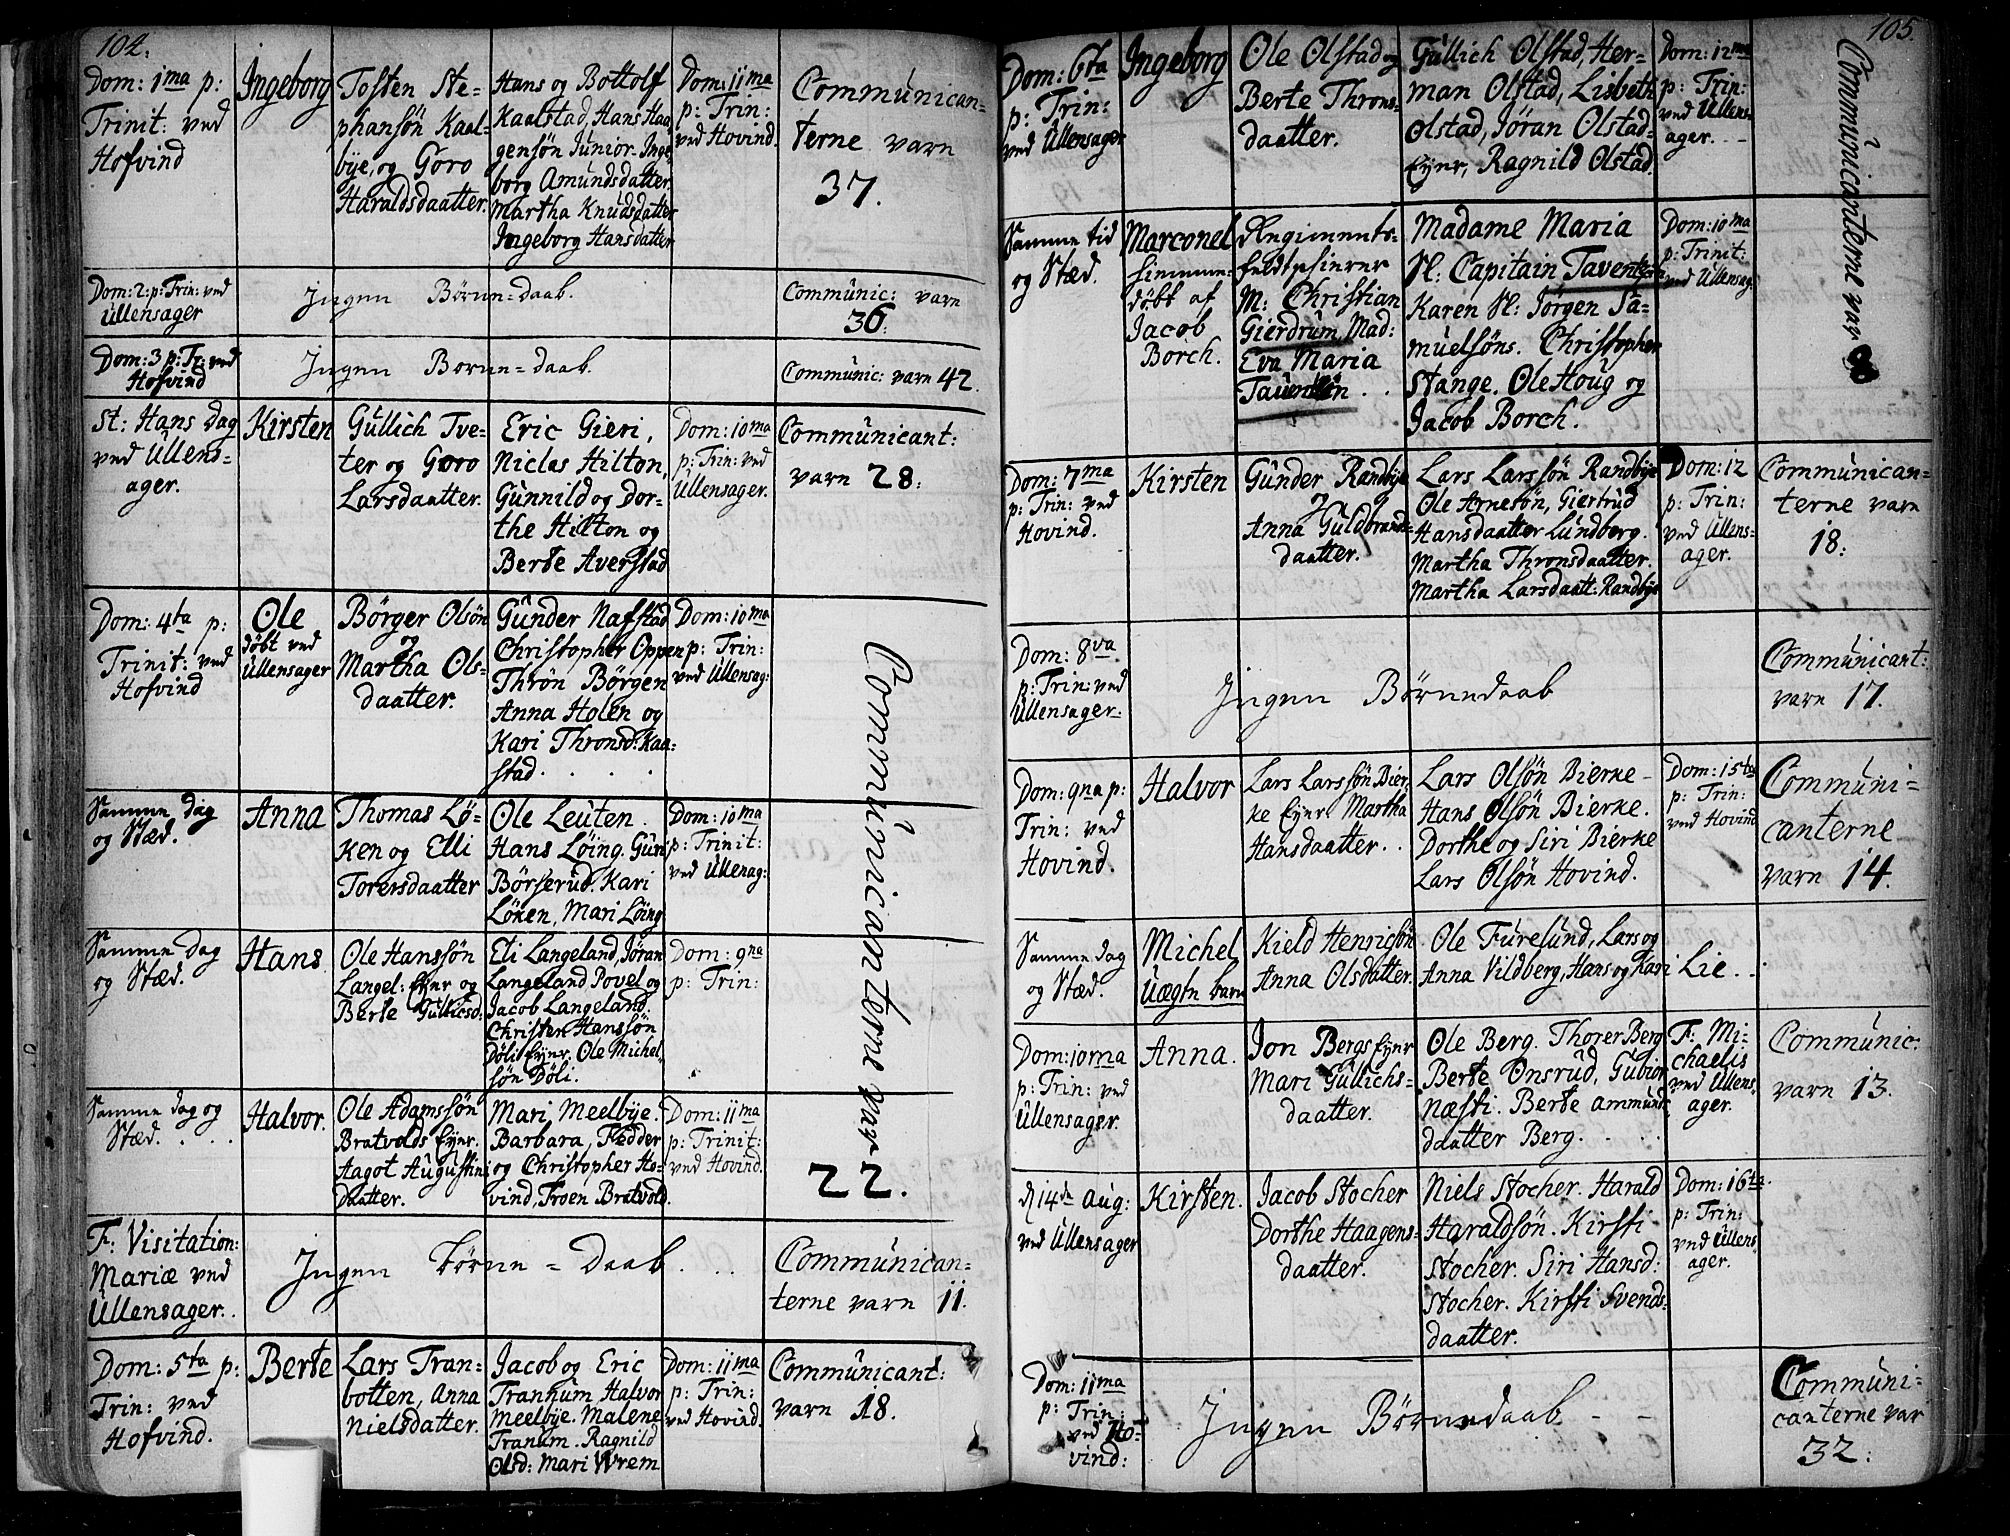 104.
Dom: 1ma p:
Trinit: ved
Hofvind
Ingeborg
Tosten Ste-
phansön Kaal-
bÿe, og Goro
Haraldsdaatter.
Hans og Bottolf
Kaalstad, Hans Haa-
gensön Junior. Inge-
borg Amundsdatter.
Martha Knudsdatter
Ingeborg Hansdatter
Dom: 11ma
p: Trin:
ved Hovind.
Communican-
terne vare
37.
Dom: 2: p: Trin: ved
Ullensager
Ingen Börne=daab.
Communic: vare
36.
Dom: 3 p: Tr: ved
Hofvind
Ingen Börne=daab.
Communic: vare 42.
St: Hans Dag
ved Ullens-
ager.
Kirsten
Güllich Tve-
ter og Goro
Larsdaatter.
Eric Gieri,
Niclas Hilton,
Gunnild og Dor-
the Hilton og
Berte Averstad
Dom: 10ma
p: Trin: ved
Ullensager.
Communicant:
vare 28:
Dom: 4ta p:
Trinit: ved
Hofvind
Ole
döbt ved
Ullensager
Börger Olsön
og
Martha Ols-
daatter.
Gunder Nafstad
Christopher Oppen
Thrön Börgen
Anna Holen og
Kari Thronsd: Kaa-
stad. . . .
Dom: 10ma
p: Trin:
ved Ullensag:
Communicanterne vare
22.
Samme dag
og Stæd.
Anna
Thomas Lö-
ken og Elli
Torersdaatter
Ole Leuten.
Hans Löing. Guri
Börserud. Kari
Löken, Mari Löing
Dom: 10ma
p: Trinit:
ved Ullenag:
Samme Dag
og Stæd.
Hans
Ole Hanssön
Langel: Eyer og
Berte Güllicsd:
Eli Langeland, Jöran
Langeland Povel og
Jacob Langeland,
Christen Hanssön
Döli Eyer. Ole Michel-
sön Döli.
Dom: 9na
p: Trin:
Samme dag og
Stæd. . . .
Halvor.
Ole Adamssön
Bratvolds Eyer.
Aagot Augustins
Daatter.
Mari Meelbÿe.
Barbara, Fedder
og Christopher Ho-
vind, Troen Bratvold.
Dom: 11ma
p: Trinit:
ved Hovind.
F: Visitation:
Mariæ ved
Ullensager.
Ingen Börne=Daab. . .
Communican-
terne vare 11.
Dom: 5ta p:
Trin: ved
Hofvind.
Berte
Lars Tran-
botten, Anna
Nielsdatter.
Jacob og Eric
Tranhum Halvor
Meelbÿe. Malene
Tranum. Ragnild
Olsd: Mari Wrem
Dom: 11ma
p: Trin:
ved Hovind.
Communicant:
vare 18.
105.
Dom: 6ta
p: Trin:
ved Ullensager
Ingeborg
Ole Olstad og
Berte Throns-
daatter.
Gullich Olstad, Her-
man Olstad, Lisbeth
Olstad, Jöran Olstad-
Eyer, Ragnild Olstad.
Dom: 12ma
p: Trin:
ved Ullens-
ager. . -
Communicanterne var 8
Samme tid
og Stæd.
Marconel
himme-
döbt af
Jacob
Borch.
Regiments-
feldtskierer
M: Christian
Gierdrum, Mad:
Eva Maria
Madame Maria
Sl: Capitain
Karen Sl: Jörgen Sa-
muelsöns. Christopher
Stange. Ole Houg og
Jacob Borch.
Dom: 10ma
p: Trinit:
ved Ullensag:
Dom: 7ma
p: Trin: ved
Hovind.
Kirsten
Gunder Randbÿe
og
Anna Guldbrands-
daatter.
Lars Larssön Randbÿe
Ole Arnesön, Giertrud
Hansdaatter Lundberg.
Martha Thronsdaatter.
Martha Larsdaatt: Randbÿe
Dom: 12
p: Trin:
ved Ullens-
ager.
Communican-
terne vare
18:
Dom: 8va
p: Trin: ved
Ullensager.
Ingen Börnedaab
Communicant:
vare 17.
Dom: 9na p:
Trin: ved
Hovind.
Halvor
Lars Larssön Bier-
ke Eyer Martha
Hansdaatter. .
Lars Olsön Bierke -
Hans Olsön Bierke.
Dorthe og Siri Bierke
Lars Olsön Hovind.
Dom: 15ta
p: Trin:
ved Hovind
Communi-
canterne
vare 14.
Samme dag
og Stæd.
Michel
Uægte barn
Kield Henricsön
Anna Olsdatter.
Ole Furelund, Lars og
Anna Vildberg, Hans og Kari Lie. . .
Dom: 10ma
p: Trin: ved
Ullensager.
Anna.
Jon Bergs Eyer
Mari Güllichs-
daatter.
Ole Berg. Thorer Berg
Berte Onsrud, Gubior
Næsti. Berte Ammunds
daatter Berg. . . .
F: Mi-
chaelis
ved Ullens-
ager.
Communic:
vare 13.
d 14de Aug:
ved Ullensager
Kirsten.
Jacob Stocher
Dorthe Haagens-
daatter.
Niels Stocher. Harald
Haraldsön. Kirsti
Stocher. Siri Hansd:
Stocher. Kirsti Svends-
daatter.
Dom: 16ta
p: Trin:
ved Ullens-
ager.
Dom: 11ma
p: Trin:
ved Ho-
vind:
Ingen Börnedaab - -
Communi-
canterne var
32: